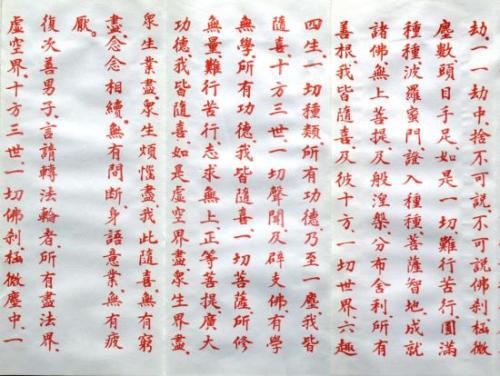 劫、一一劫中捨不可說不可說佛剎極微
塵數頭目手足、如是一切難行苦行、圓滿
種種波羅蜜門、證入種種菩薩智地、成就
諸佛無上菩提、及般涅槃、分布舍利、所有
善根、我皆隨喜、及彼十方一切世界、六趣
四生、一切種類、所有功德、乃至一塵、我皆
隨喜、十方三世一切聲聞、及辟支佛、有學
無學、所有功德、我皆隨喜、一切菩薩、所修
無量難行苦行、志求無上正等菩提、廣大
功德、我皆隨喜、如是虛空界盡、眾生界盡、
眾生業盡、眾生煩惱盡、我此隨喜、無有窮
盡、念念相續、無有間斷、身語意業、無有疲
厭。
復次善男子、言請轉法輪者、所有盡法界、
虛空界、十方三世一切佛剎極微塵中、一